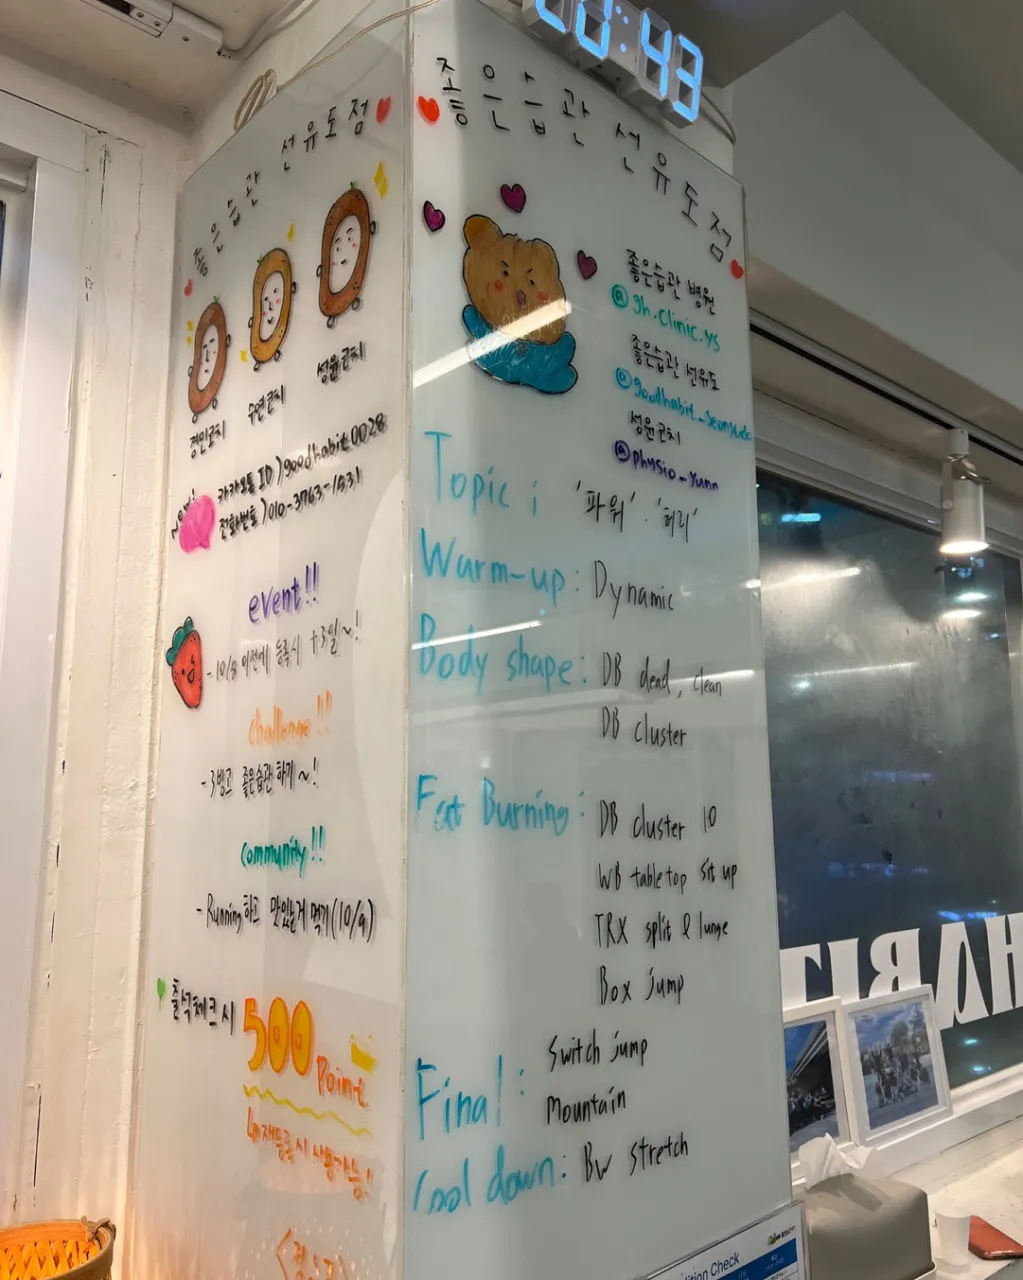 좋은습관 선유도점
경민코치
수연코치
성윤코치
New!
카카오톡 ID)goodhabit0028
전화번호)010-3763-1531
event!!
-10/8 이전에 등록시 +3일~!
challenge!!!
-3빙고 좋은습관하기~!
community!!!
-Running하고 맛있는거 먹기(10/9)
출석체크시
500
Point
재등록시 사용가능!
20:43
좋은습관 선유도점
좋은습관 병원
@gh.clinic.ys
좋은습관 선유도
@goodhabit_seonyudo
성윤코치
@physio_yunn
Topic : '파워' · '허리'
Warm-up : Dynamic
Body shape : DB dead, clean
DB cluster
Fat Burning : DB cluster 10
WB tabletop sit up
TRX split & lunge
Box jump
Final : Switch jump
Mountain
Cool down : BW stretch
Check
HABIT